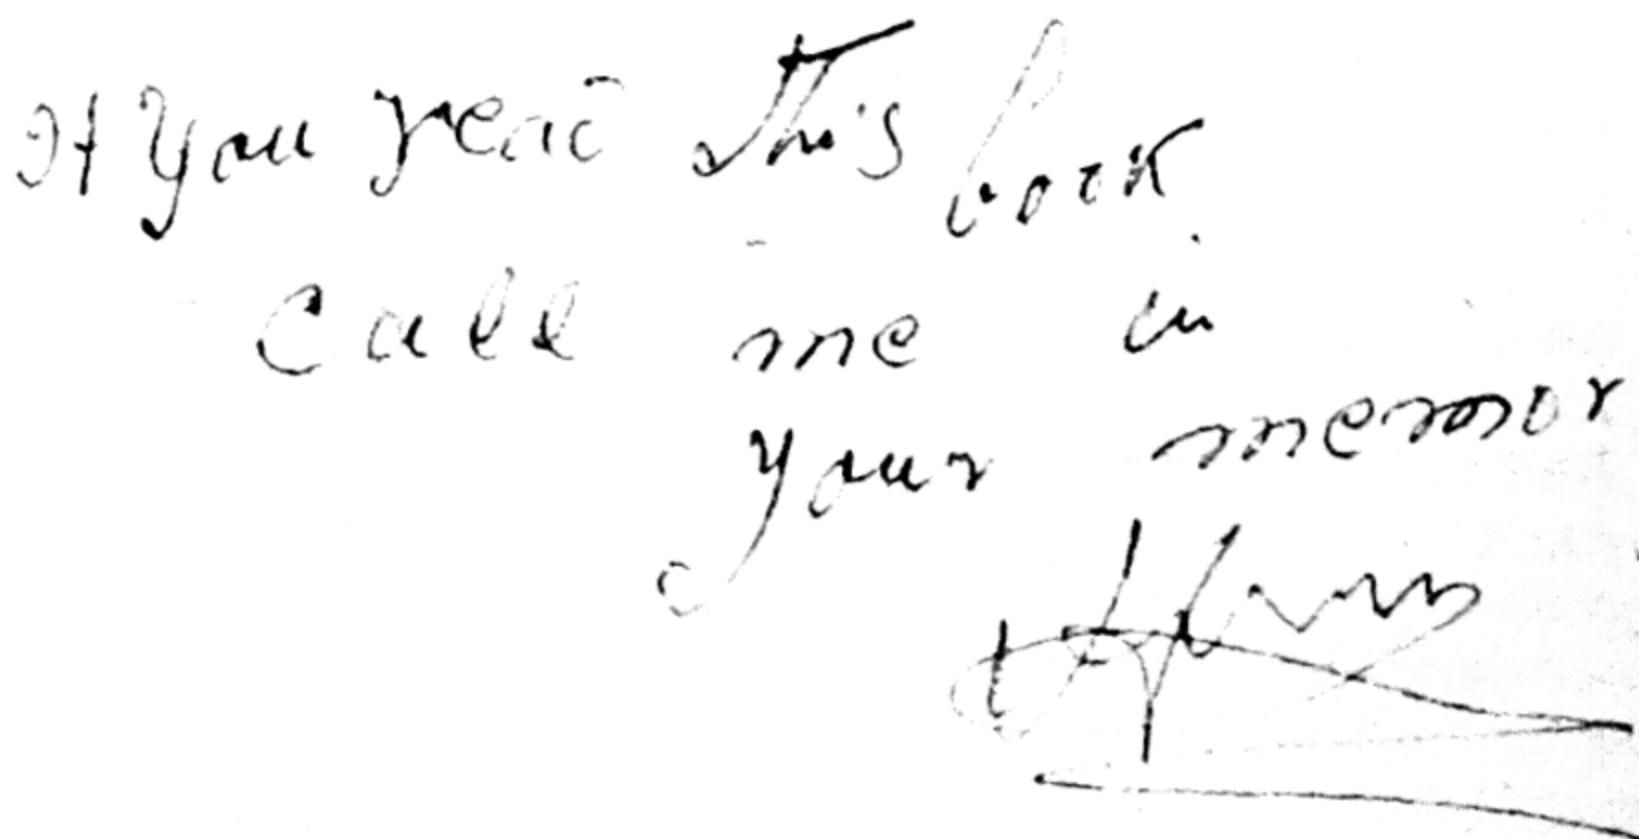 If you read this book
call me in
your memor